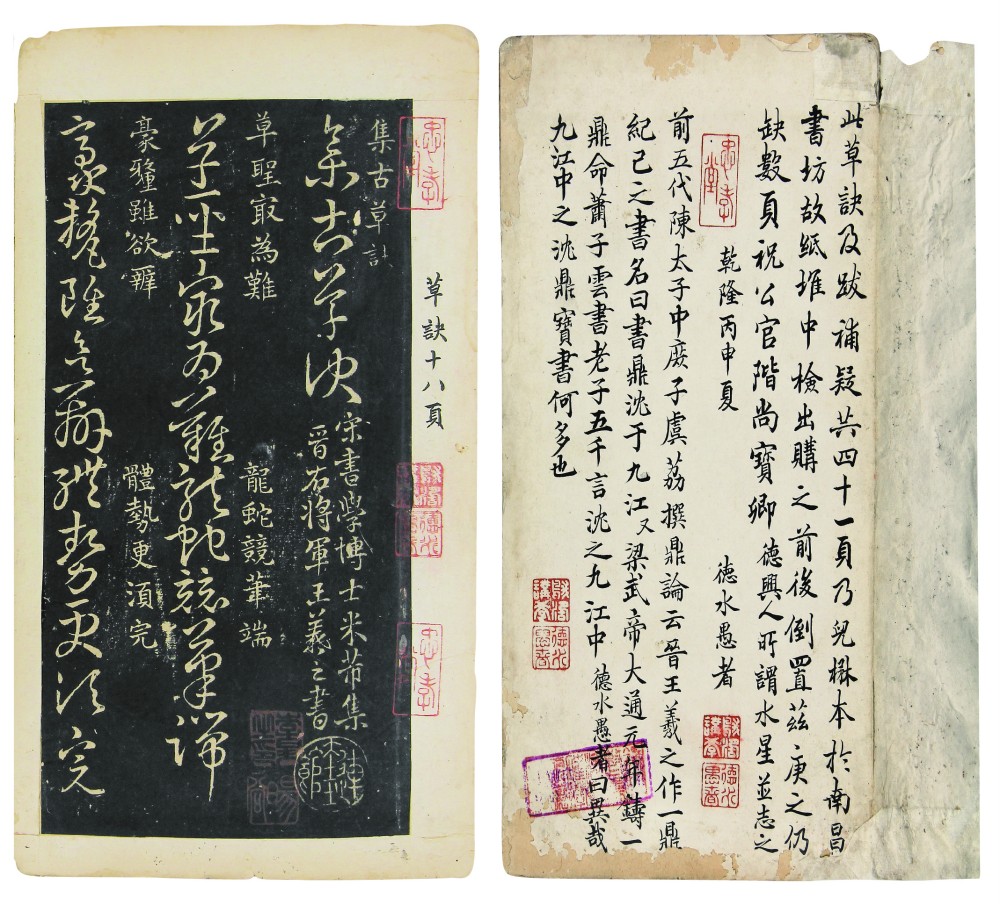 此草訣及跋補疑共四十一頁乃兒楙本於南昌
書坊故紙堆中檢出購之前後倒置茲庚之仍
缺數頁祝公官階尚寶卿德興人所謂水星並志之
忠孝堂
乾隆丙申夏 德水愚者
前五代陳太子中庶子虞荔撰鼎論云晉王羲之作一鼎
紀己之書名曰書鼎沈于九江又梁武帝大通元年鑄一
鼎命蕭子雲書老子五千言沈之九江中德水愚者曰異哉
九江中之沈鼎寶書何多也
草訣十八頁
集古草訣
集古草訣
宋書學博士米芾集
晉右將軍王羲之書
草聖冣為難 龍蛇競筆端
草聖冣為難龍蛇競筆端
豪釐雖欲辨 體勢更須完
豪釐雖欲辨體勢更須完